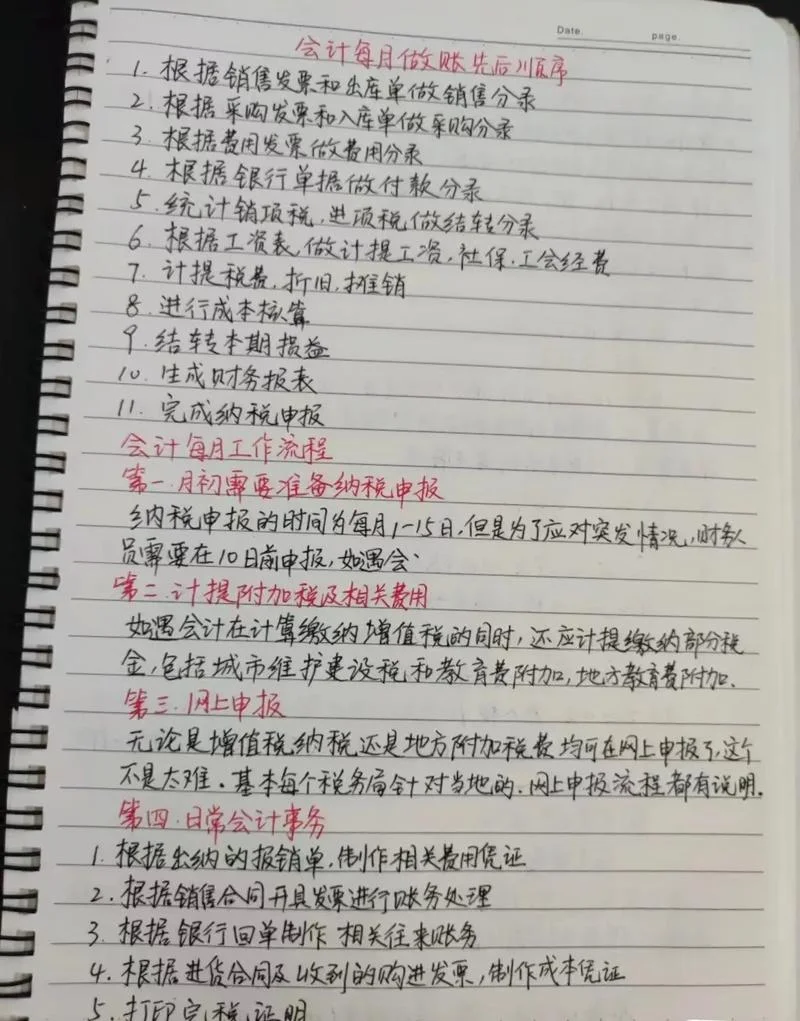 Date.
page.
会计每月做账先后顺序
1. 根据销售发票和出库单做销售分录
2. 根据采购发票和入库单做采购分录
3. 根据费用发票做费用分录
4. 根据银行单据做付款分录
5. 统计销项税,进项税做结转分录
6. 根据工资表,做计提工资,社保.工会经费
7. 计提税费,折旧,摊销
8. 进行成本核算
9. 结转本期损益
10. 生成财务报表
11. 完成纳税申报
会计每月工作流程
第一.月初需要准备纳税申报
纳税申报的时间为每月1-15日,但是为了应对突发情况,财务人
员需要在10日前申报,如遇会
第二.计提附加税及相关费用
如遇会计在计算缴纳增值税的同时,还应计提缴纳部分税
金,包括城市维护建设税和教育费附加,地方教育费附加.
第三.网上申报
无论是增值税纳税还是地方附加税费均可在网上申报了,这个
不是太难.基本每个税务局针对当地的.网上申报流程都有说明.
第四.日常会计事务
1. 根据出纳的报销单,制作相关费用凭证
2. 根据销售合同开具发票进行账务处理
3. 根据银行回单制作相关往来账务
4. 根据进货合同及收到的购进发票,制作成本凭证
5. 打印完税证明